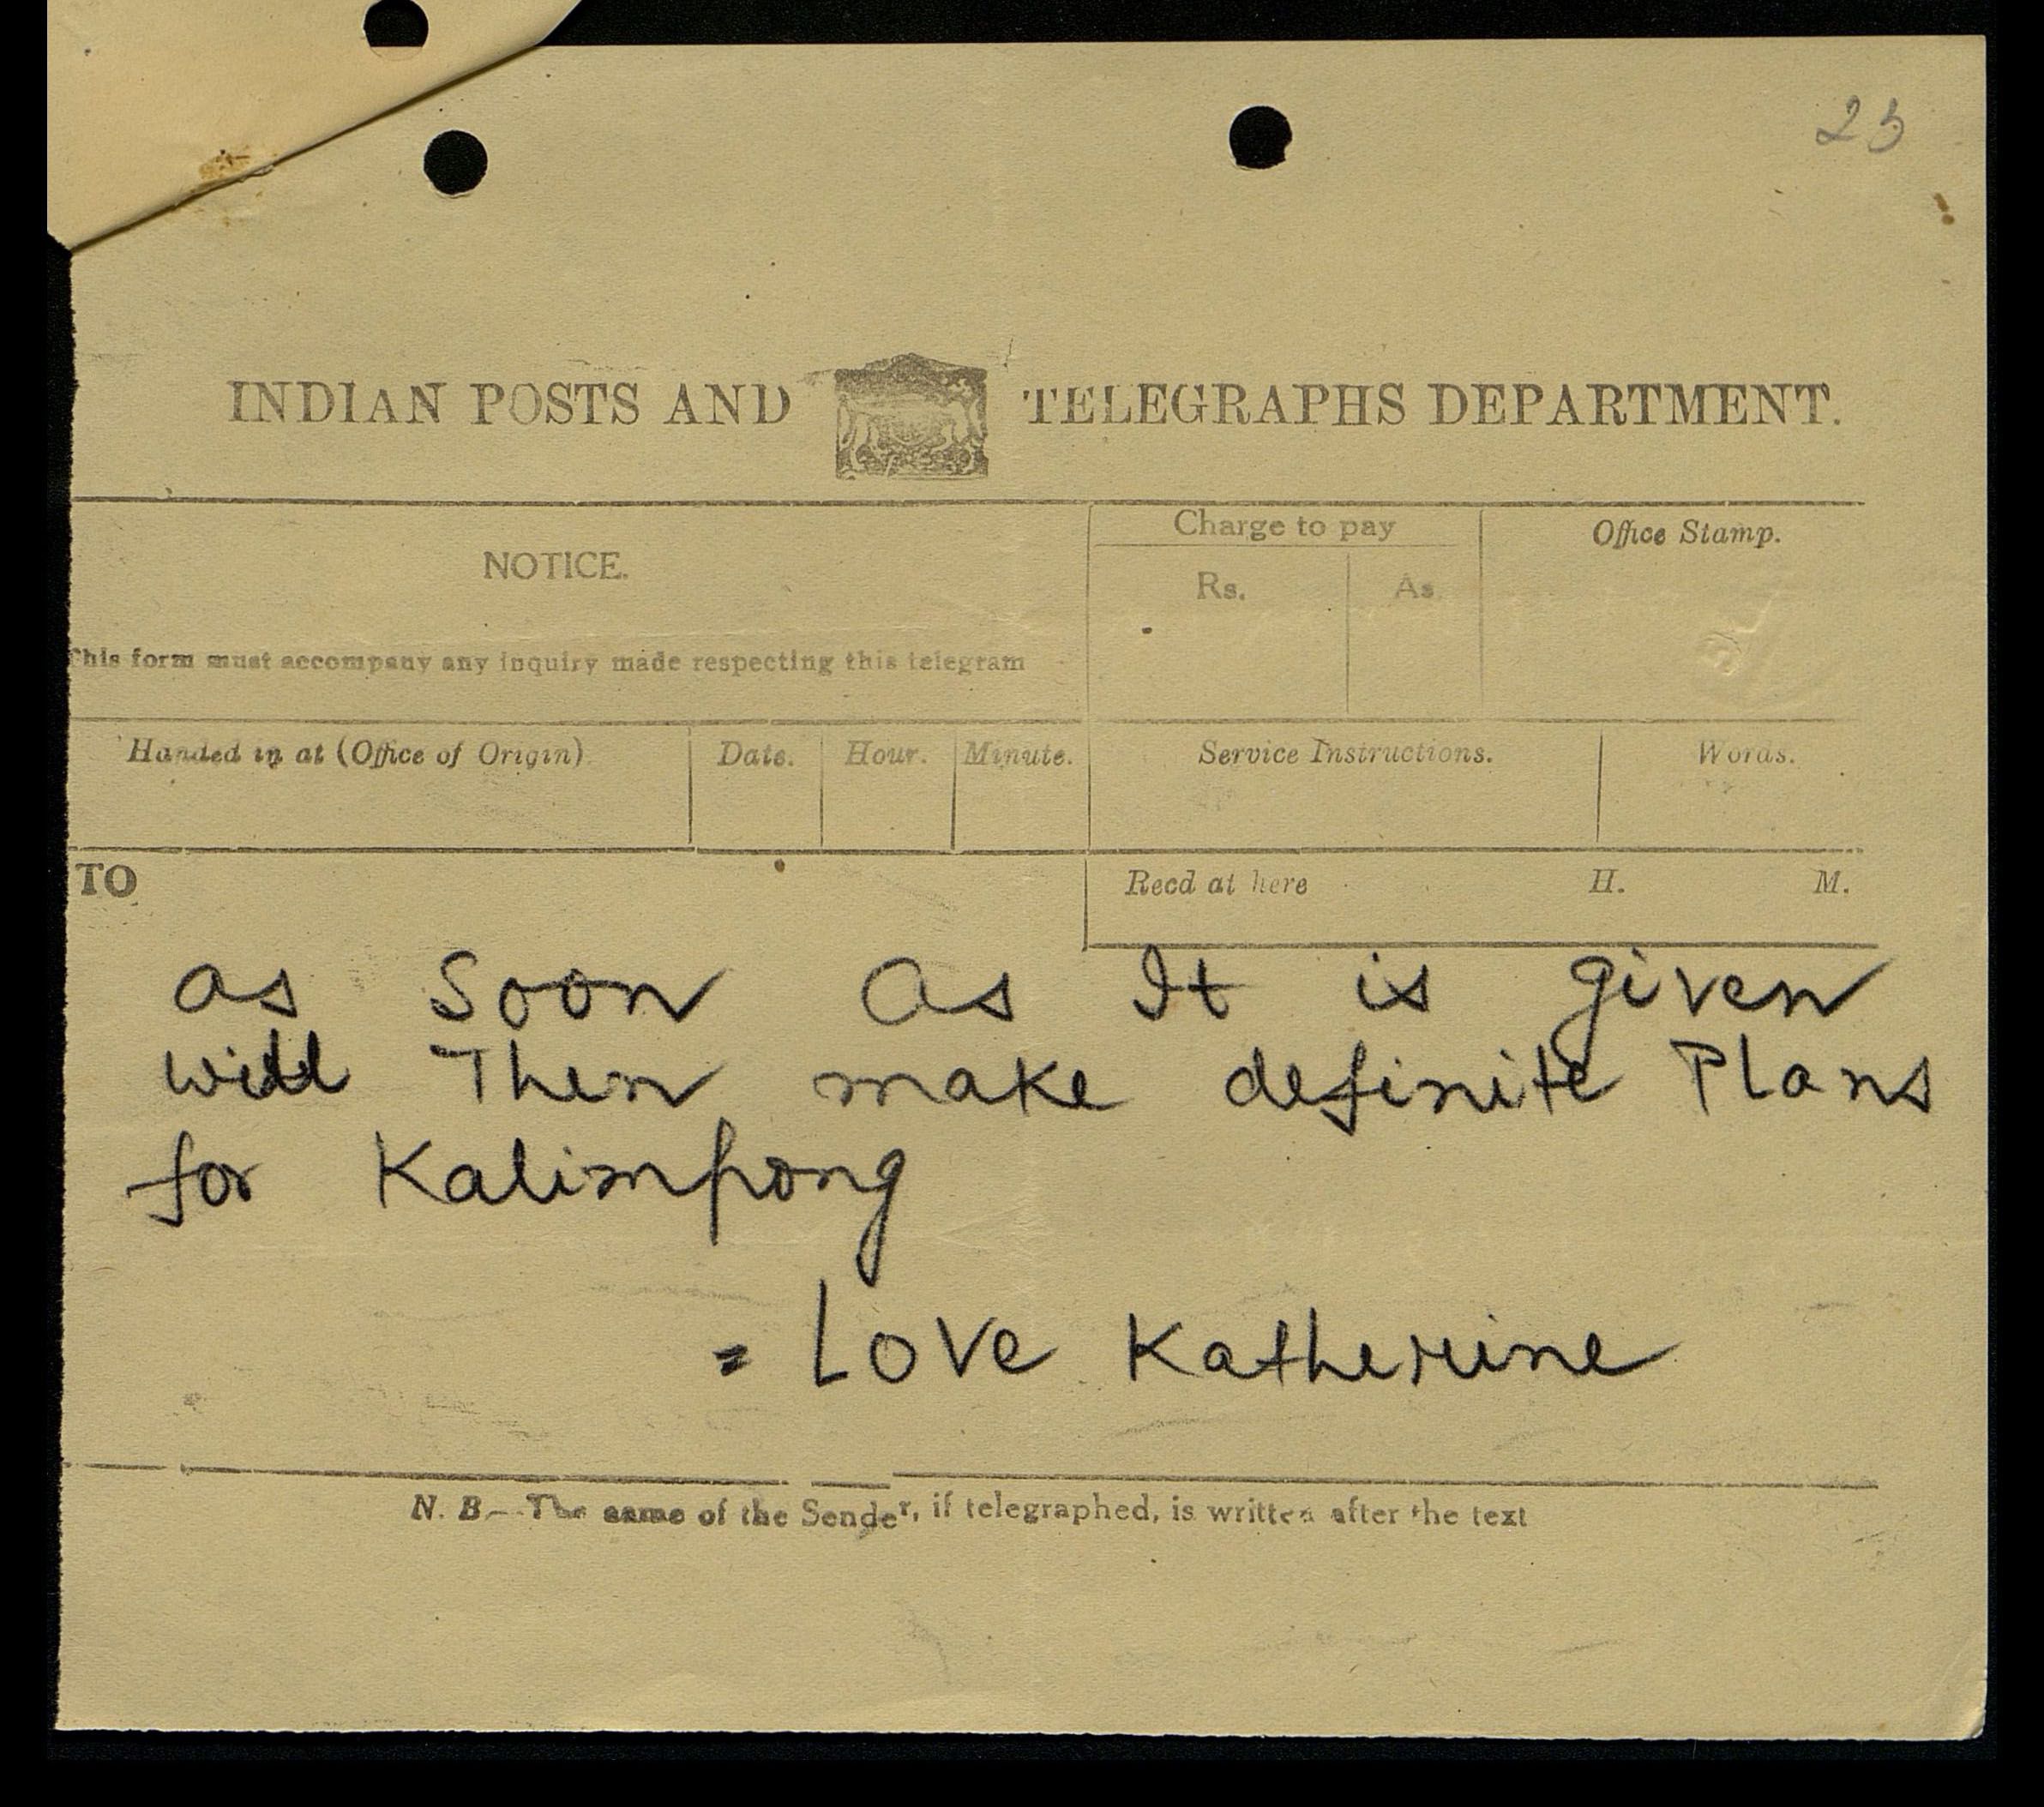 25
INDIAN POSTS AND TELEGRAPHS DEPARTMENT.
NOTICE.
This form must accompany any inquiry made respecting this telegram
Charge to pay
Rs. As
Office Stamp.
Handed in at (Office of Origin) Date. Hour. Minute. Service Instructions. Words.
TO
Recd at here H. M.
as Soon As It is given
will Then make definite Plans
for Kalimpong
= Love Katherine
N. B.—The name of the Sender, if telegraphed, is written after the text